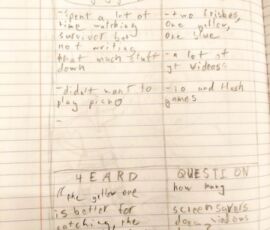 -spent a lot of
time watching
survivor but
not writing
that much stuff
down
-didn't want to
play piano
-
-two frisbees,
one yellow,
one blue
-a lot of
yt videos
-io and flash
games
HEARD
If the yellow one
is better for
catching, the
QUESTION
how many
screensavers
does windows